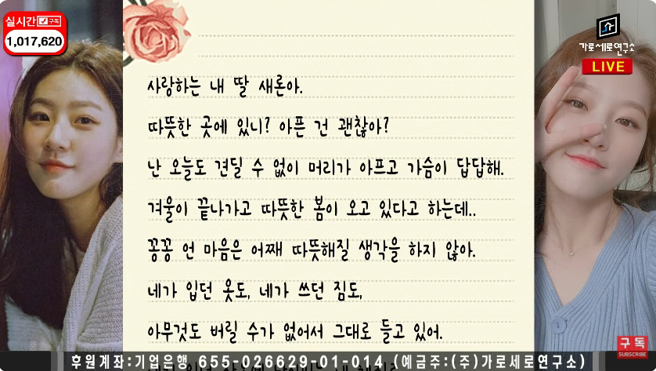 실시간 구독
1,017,620
가로세로연구소
LIVE
사랑하는 내 딸 새론아.
따뜻한 곳에 있니? 아픈 건 괜찮아?
난 오늘도 견딜 수 없이 머리가 아프고 가슴이 답답해.
겨울이 끝나가고 따뜻한 봄이 오고 있다고 하는데..
꽁꽁 언 마음은 어째 따뜻해질 생각을 하지 않아.
네가 입던 옷도, 네가 쓰던 짐도,
아무것도 버릴 수가 없어서 그대로 들고 있어.
구독
SUBSCRIBE
후원계좌:기업은행 655-026629-01-014 (예금주:(주)가로세로연구소)